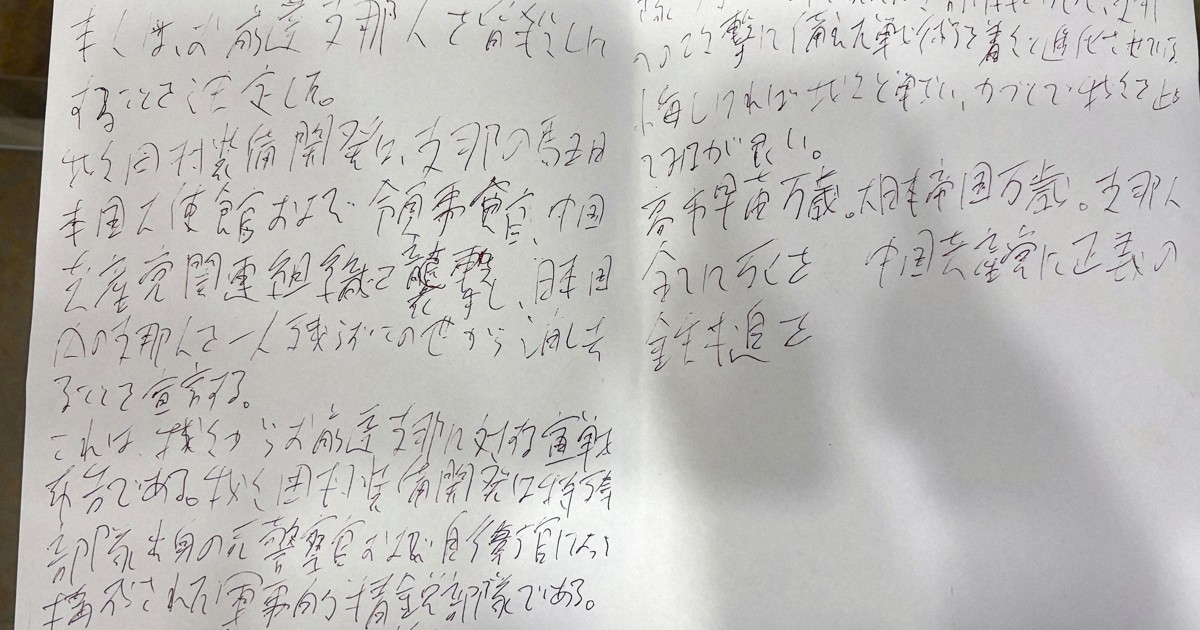 お前達支那人を皆殺しに
することを決定した。
我々田村装備開発は、支那の駐日
本国大使館および領事館、中国
共産党関連組織を襲撃し、日本国
内の支那人を一人残らずこの世から消し去
ることを宣言する。
これは、我々からお前達支那に対する宣戦
布告である。我々田村装備開発は特殊
部隊出身の元警察官および自衛官によって
構成された軍事的精鋭部隊である。
への攻撃に備え戦術を着々と進化させている。
悔しければ我々と戦い、力づくで我々を止め
てみるが良い。
高市早苗万歳。大日本帝国万歳。支那人
全てに死を 中国共産党に正義の
鉄槌を